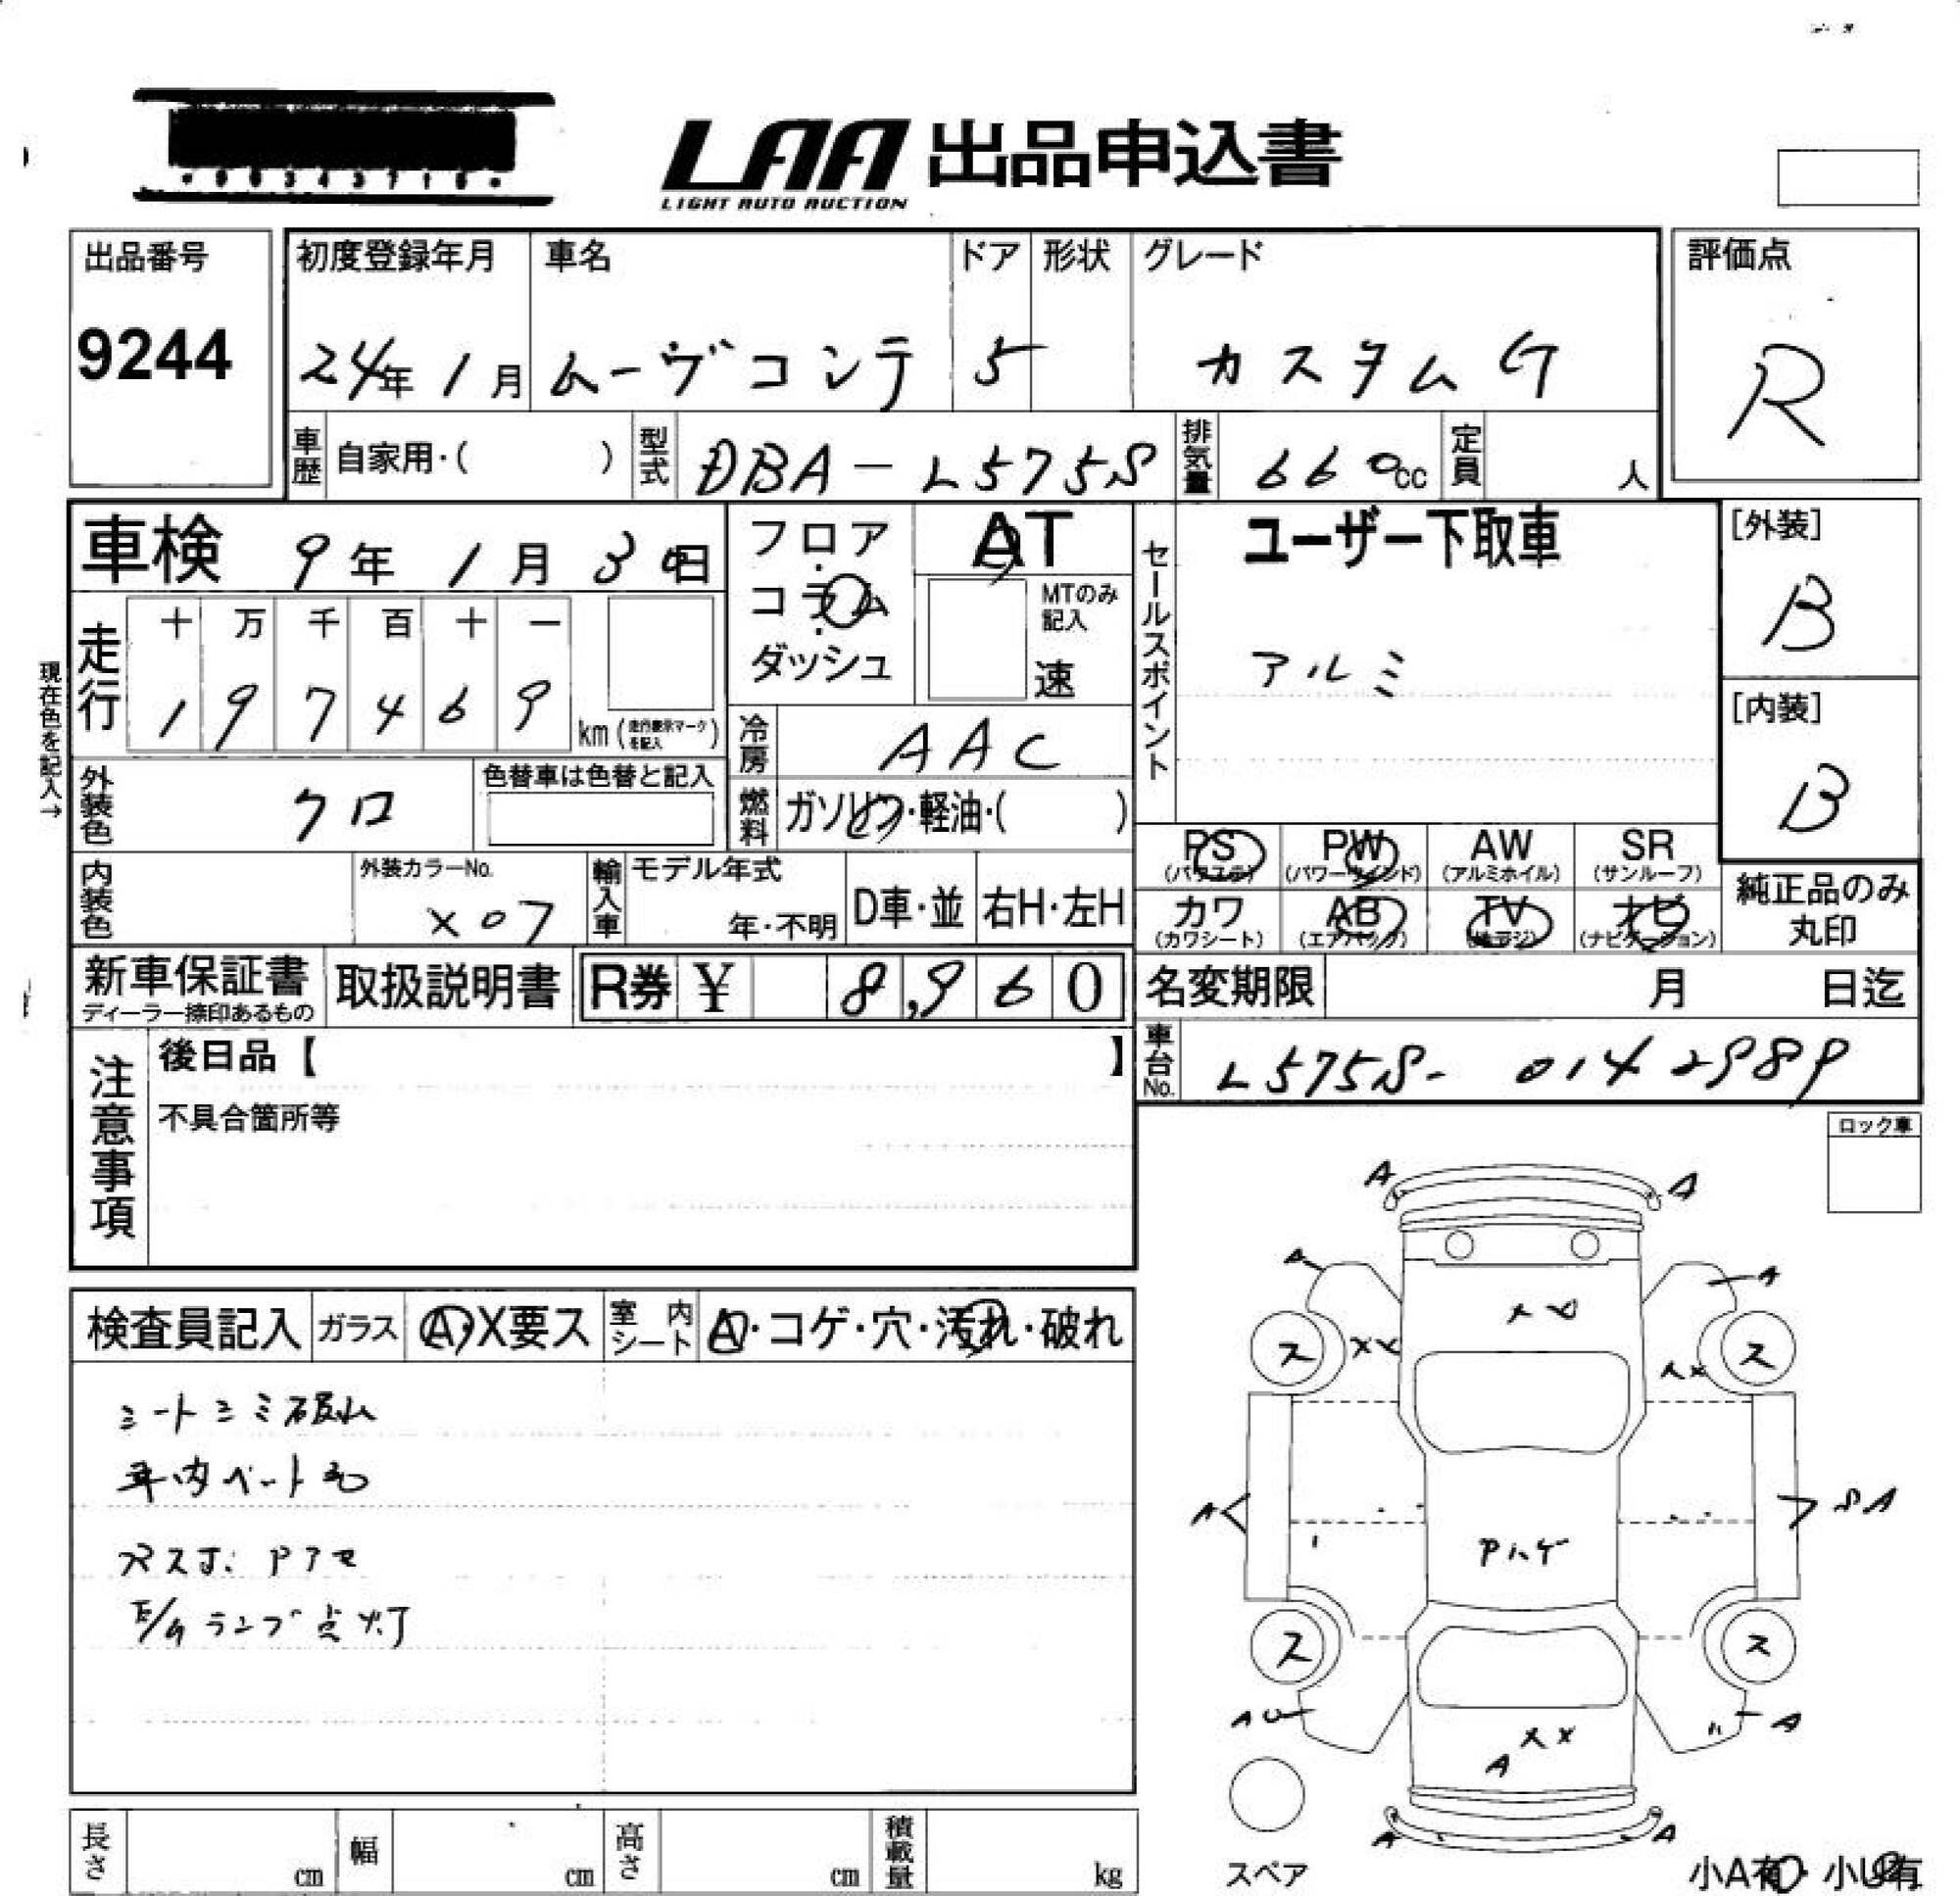 LAA 出品申込書
LIGHT AUTO AUCTION
出品番号
9244
初度登録年月
24年1月
車名
ムーヴコンテ
ドア
5
形状
グレード
カスタムG
評価点
R
車歴 自家用・( )
型式 DBA-L575S
排気量 660cc
定員 人
車検 9年1月30日
フロア・コラム・ダッシュ
AT
MTのみ記入
速
セールスポイント
ユーザー下取車
アルミ
[外装]
B
[内装]
B
現在色を記入→
走行
十 万 千 百 十 一
1 9 7 4 6 9
km(走行表示マークを記入)
冷房 AAC
外装色 クロ
色替車は色替と記入
燃料 ガソリン・軽油・( )
PS (パワステ)
PW (パワーウインド)
AW (アルミホイル)
SR (サンルーフ)
カワ (カワシート)
AB (エアバッグ)
TV
ナビ (ナビゲーション)
純正品のみ
丸印
内装色
外装カラーNo.
X07
輸入車
モデル年式
年・不明
D車・並
右H・左H
新車保証書
ディーラー捺印あるもの
取扱説明書
R券 ¥ 8,960
名変期限 月 日迄
車台No. L575S-0142989
注意事項
後日品【 】
不具合箇所等
ロック車
検査員記入
ガラス A・X要ス
室内シート A・コゲ・穴・汚れ・破れ
シートコミ破れ
車内ペート毛
E/Gランプ点灯
A A
A A
ス ス
A
SA
Pハゲ
ス ス
A
A
A A
スペア
小A有・小U有
長さ cm
幅 cm
高さ cm
積載量 kg